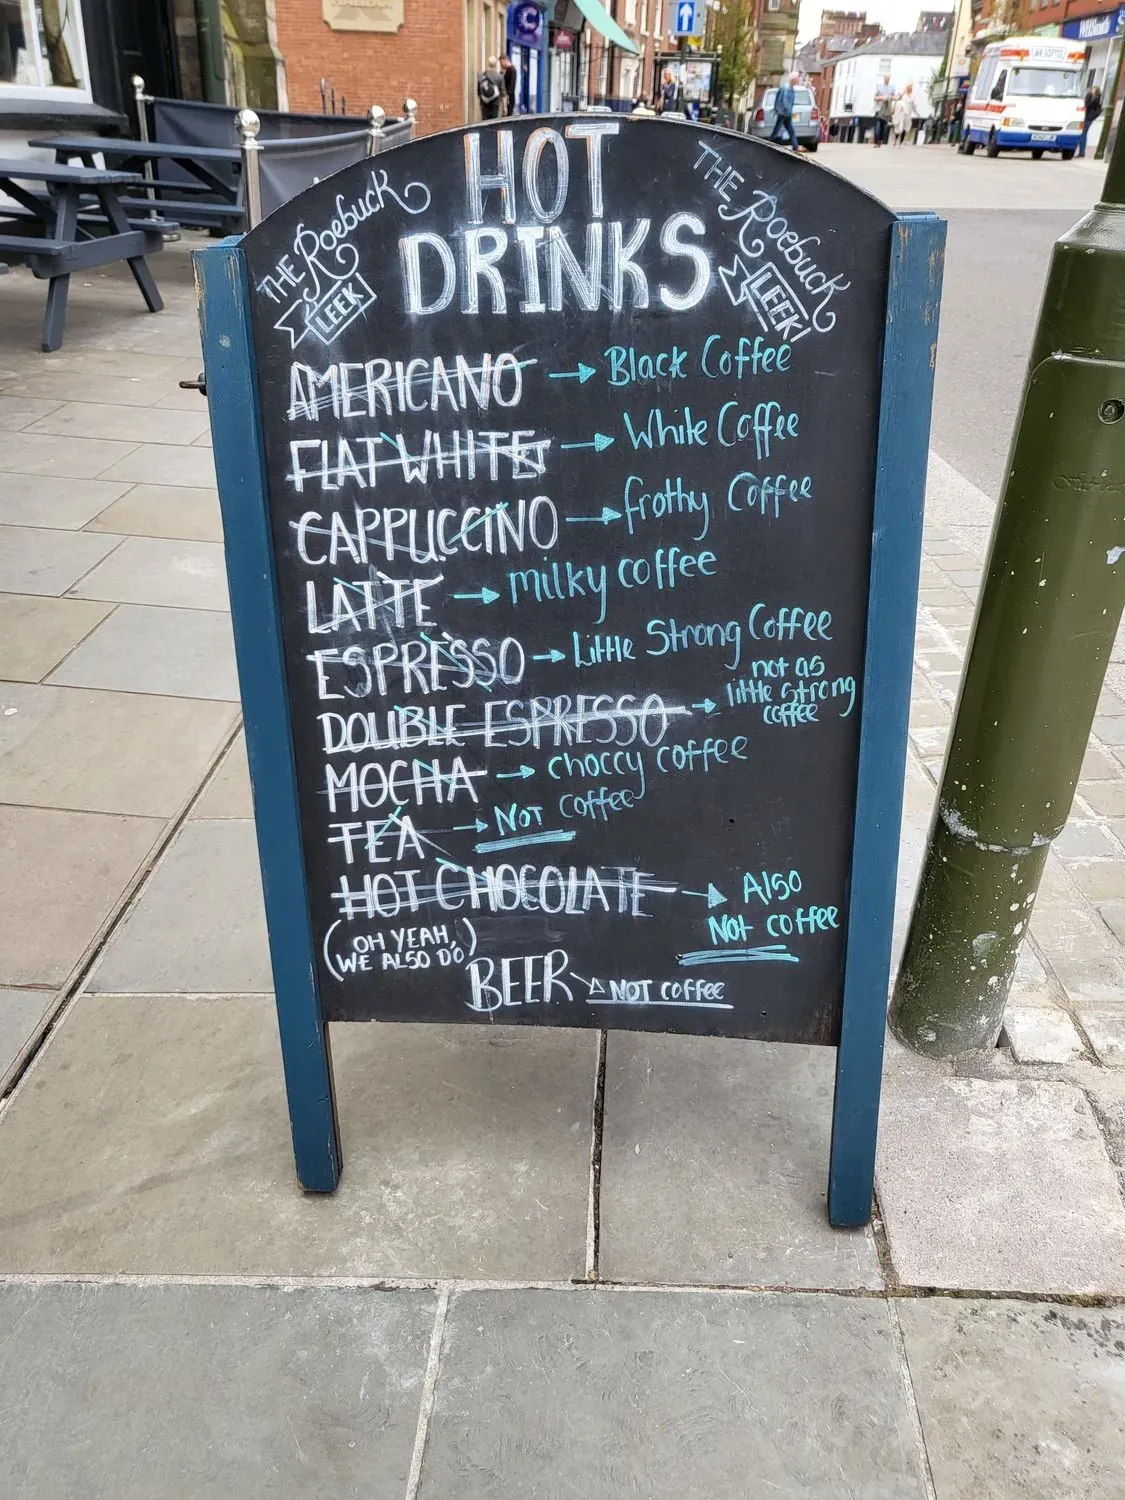 HOT
DRINKS
THE Roebuck
LEEK
THE Roebuck
LEEK
AMERICANO → Black Coffee
FLAT WHITE → White Coffee
CAPPUCCINO → frothy Coffee
LATTE → milky coffee
ESPRESSO → Little Strong Coffee
DOUBLE ESPRESSO → not as
little strong
coffee
MOCHA → choccy coffee
TEA → NOT coffee
HOT CHOCOLATE → Also
Not coffee
(OH YEAH,
WE ALSO DO)
BEER → NOT coffee
WHSmith